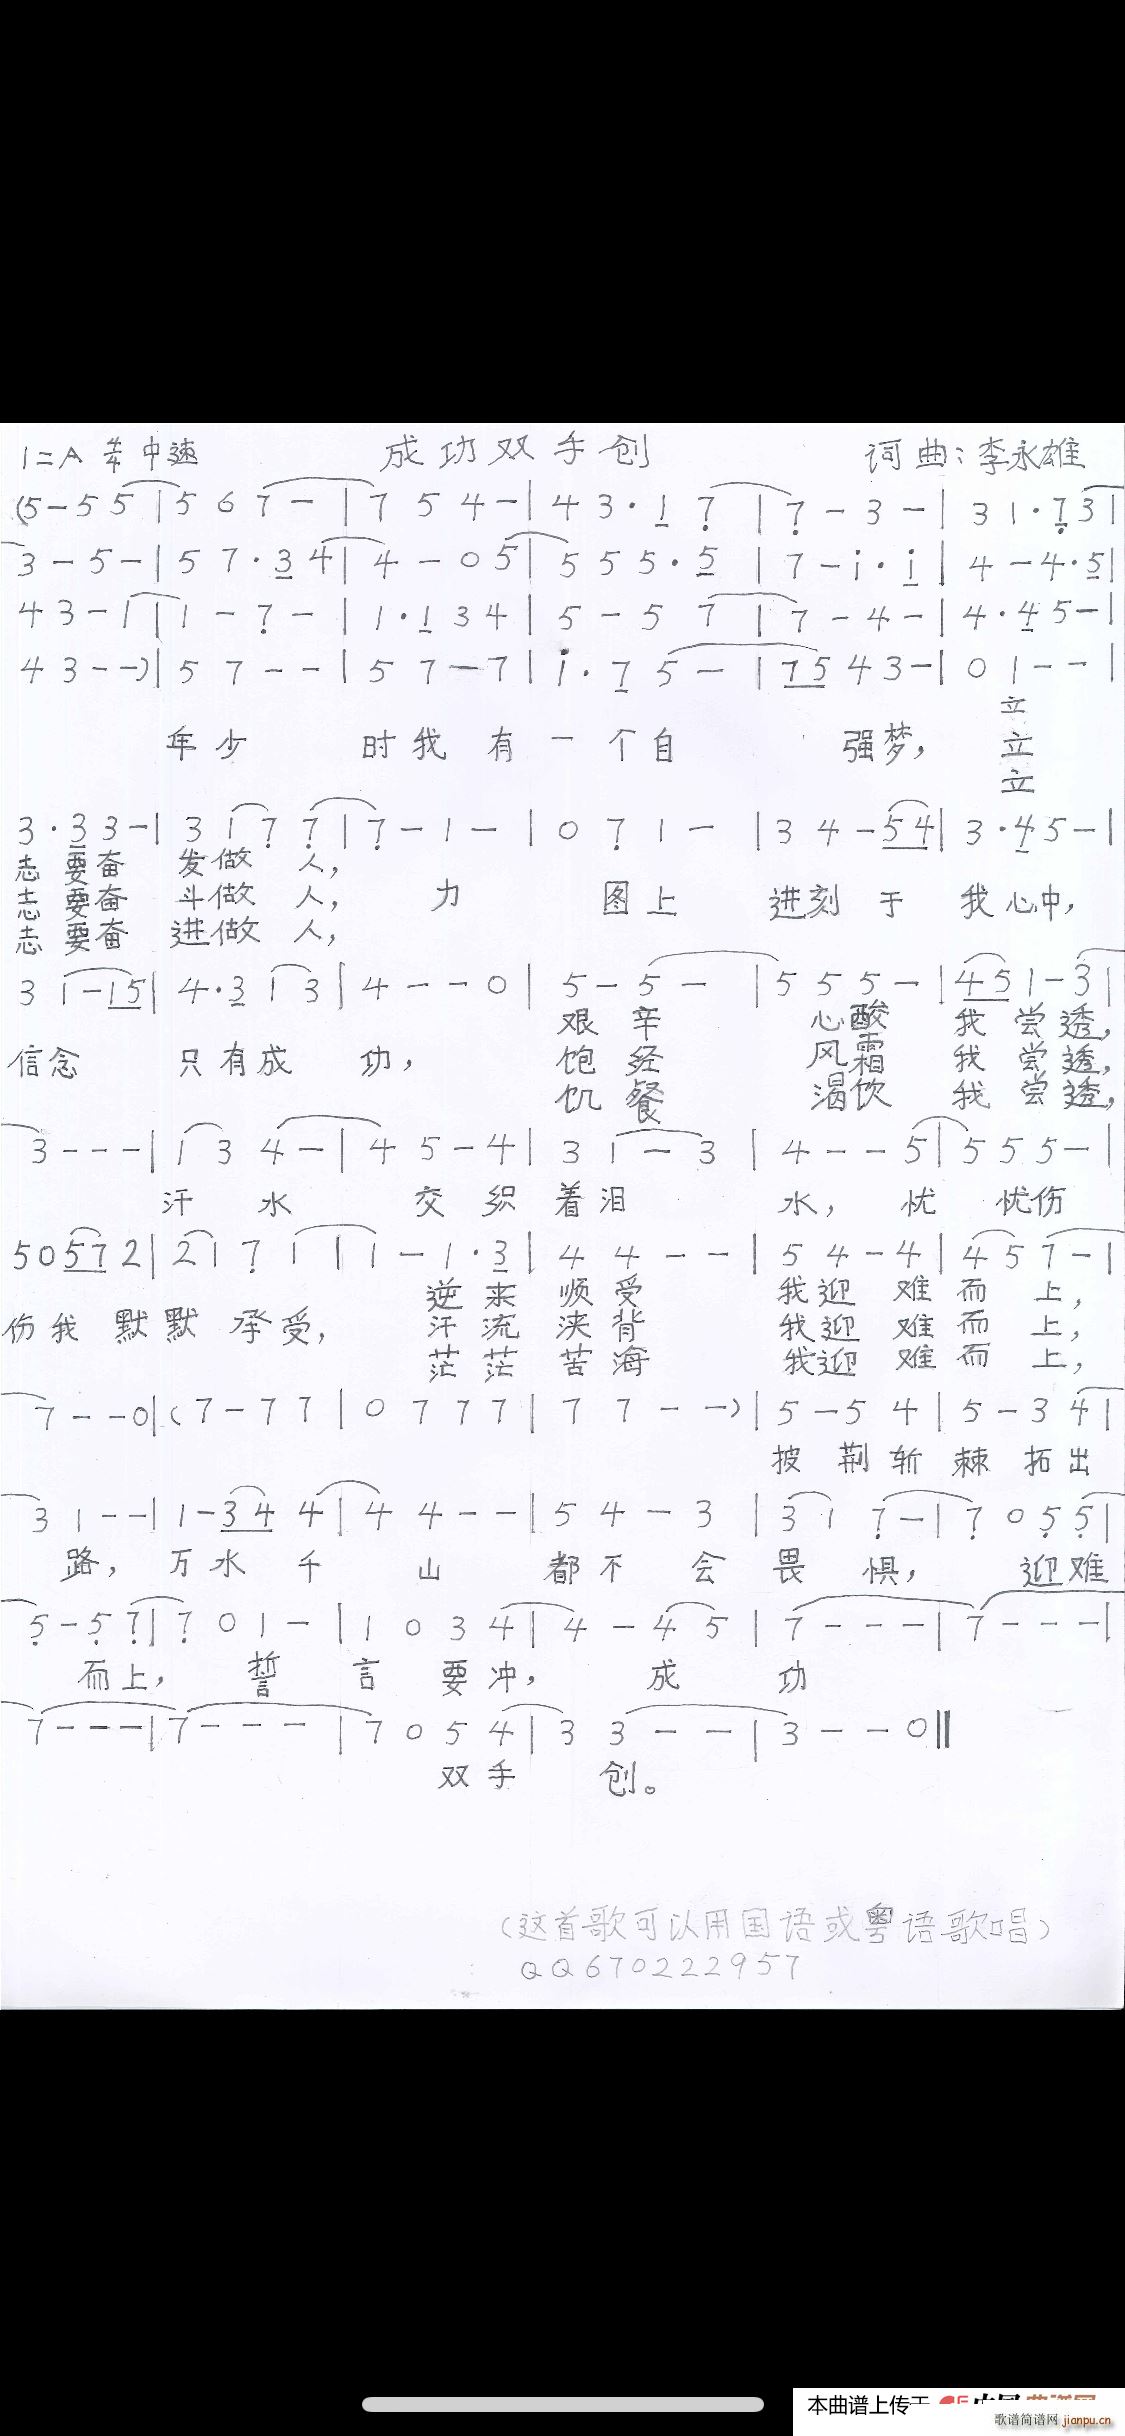 1=A 4/4 中速 成功双手创 词曲：李永雄
(5-55|567-|754-|43·17|7-3-|31·73|
3-5-|57·34|4-05|555·5|7-i·i|4-4·5|
43-1|1-7-|1·134|5-57|7-4-|4·45-|
43--)|57--|57-7|i·75-|7543-|01--|
立
年少 时我有一个自 强梦， 立
立
3·33-|3177|7-1-|071-|34-54|3·45-|
志要奋 发做 人，
志要奋 斗做 人， 力 图上 进刻于 我心中，
志要奋 进做 人，
31-15|4·313|4--0|5-5-|555-|451-3|
艰辛 心酸 我尝透，
信念 只有成 功， 饱经 风霜 我尝透，
饥餐 渴饮 我尝透，
3---|134-|45-4|31-3|4--5|555-|
汗 水 交织着泪 水，忧 忧伤
50572|2171|1-1·3|44--|54-4|457-|
逆来顺受 我迎难而上，
伤我默默承受， 汗流浃背 我迎难而上，
茫茫苦海 我迎难而上，
7--0|(7-77|0777|77--)|5-54|5-34|
披荆斩棘拓出
31--|1-344|44--|54-3|317-|7055|
路，万水千 山 都不会畏 惧， 迎难
5-57|701-|1034|4-45|7---|7---|
而上， 誓 言 要冲， 成 功
7---|7---|7054|33--|3--0‖
双手 创。
（这首歌可以用国语或粤语歌唱）
QQ670222957
本曲谱上传于
歌谱简谱网 jianpu.cn